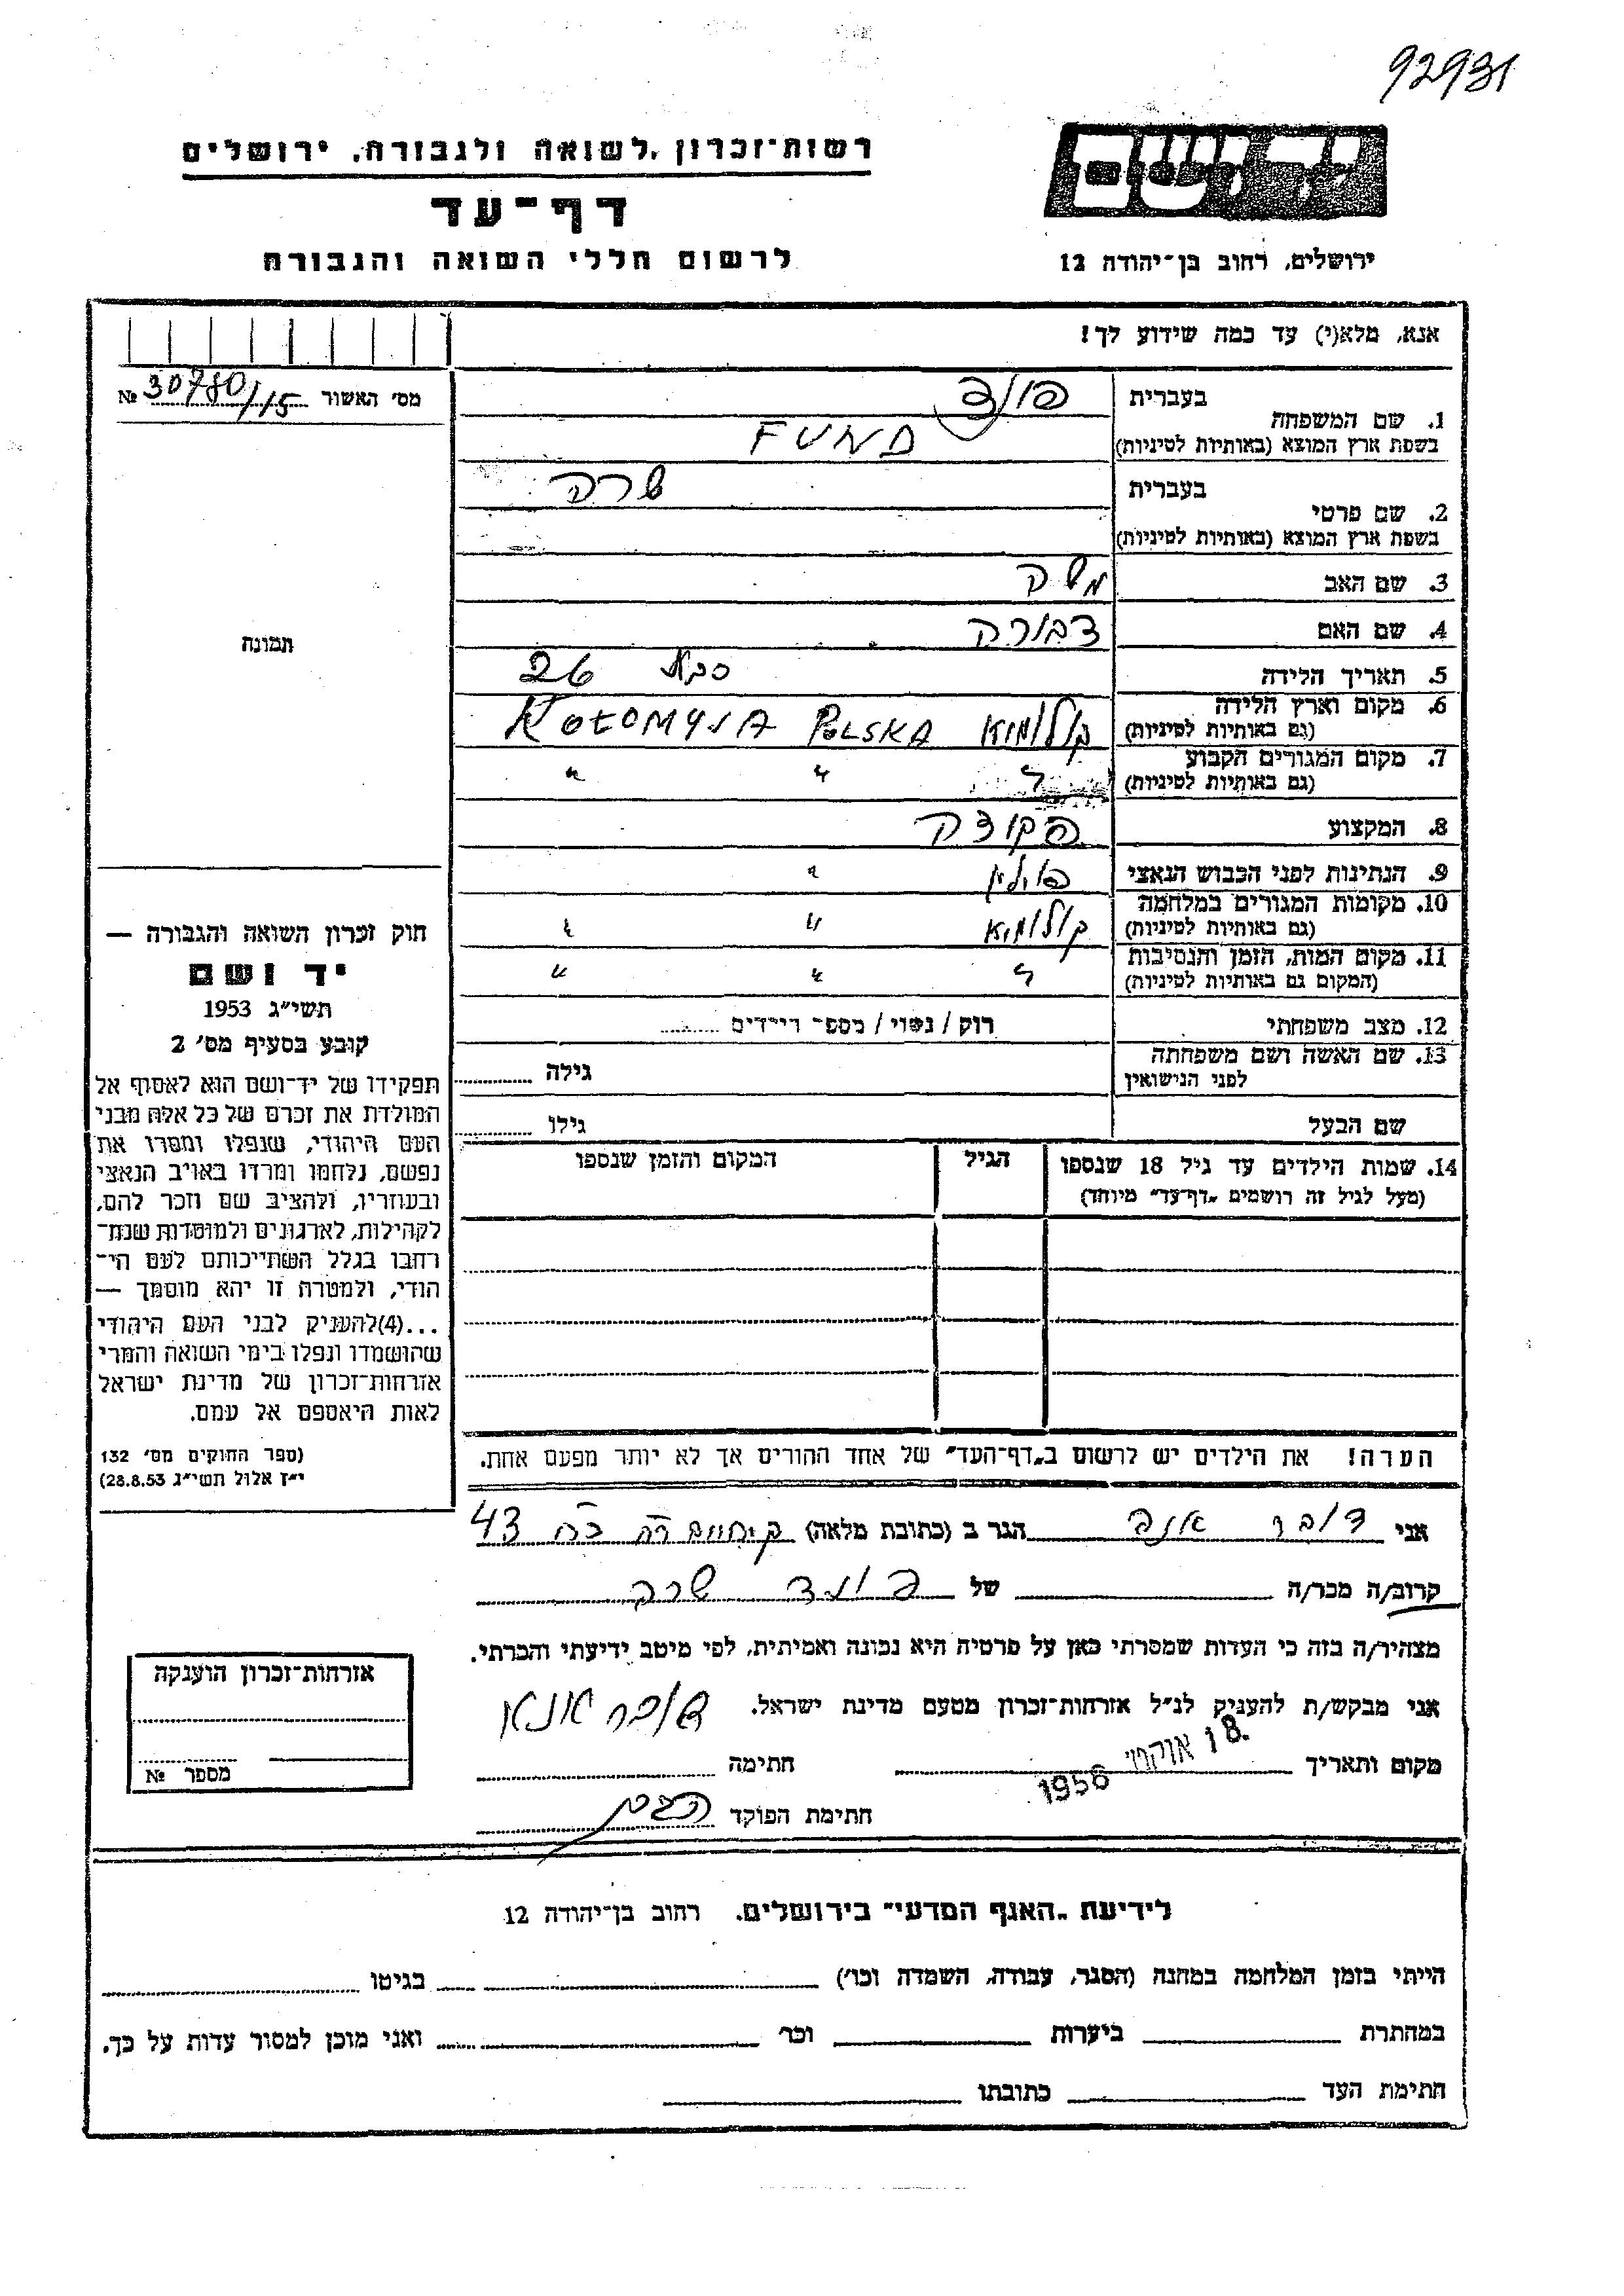 92931
רשות־זכרון לשואה ולגבורה, ירושלים
יד ושם
דף־עד
לרשום חללי השואה והגבורה
ירושלים, רחוב בן־יהודה 12
אנא, מלא(י) עד כמה שידוע לך!
מס' האשור № 30780/15
1. שם המשפחה
בעברית פונד
בשפת ארץ המוצא (באותיות לטיניות) FUND
2. שם פרטי
בעברית שרה
בשפת ארץ המוצא (באותיות לטיניות)
3. שם האב משה
4. שם האם דבורה
5. תאריך הלידה 26
6. מקום וארץ הלידה
(גם באותיות לטיניות) קולומיא POLSKA KOŁOMYJA
7. מקום המגורים הקבוע
(גם באותיות לטיניות) " " "
8. המקצוע פקידה
9. הנתינות לפני הכבוש הנאצי פולין "
10. מקומות המגורים במלחמה
(גם באותיות לטיניות) קולומיא " "
11. מקום המות, הזמן והנסיבות
(המקום גם באותיות לטיניות) " " "
12. מצב משפחתי רוק / נשוי / מספר הילדים
13. שם האשה ושם משפחתה
לפני הנישואין גילה
שם הבעל גילו
14. שמות הילדים עד גיל 18 שנספו
(מעל לגיל זה רושמים "דף־עד" מיוחד)
הגיל
המקום והזמן שנספו
הערה! את הילדים יש לרשום ב"דף־העד" של אחד ההורים אך לא יותר מפעם אחת.
תמונה
חוק זכרון השואה והגבורה —
יד ושם
תשי"ג 1953
קובע בסעיף מס' 2
תפקידו של יד־ושם הוא לאסוף אל
המולדת את זכרם של כל אלה מבני
העם היהודי, שנפלו ומסרו את
נפשם, נלחמו ומרדו באויב הנאצי
ובעוזריו, ולהציב שם וזכר להם,
לקהילות, לארגונים ולמוסדות שנח־
רחבו בגלל השתייכותם לעם הי־
הודי, ולמטרה זו יהא מוסמך —
...(4)להעניק לבני העם היהודי
שהושמדו ונפלו בימי השואה והמרי
אזרחות־זכרון של מדינת ישראל
לאות היאספם אל עמם.
(ספר החוקים מס' 132
י"ז אלול תשי"ג 28.8.53)
אני אנה הגר ב (כתובת מלאה) 43
קרוב/ה מכר/ה של פונד שרה
מצהיר/ה בזה כי העדות שמסרתי כאן על פרטיה היא נכונה ואמיתית, לפי מיטב ידיעתי והכרתי.
אני מבקש/ת להעניק לנ"ל אזרחות־זכרון מטעם מדינת ישראל.
מקום ותאריך 18 אוקט' 1956 חתימה
חתימת הפוקד
אזרחות־זכרון הוענקה
מספר №
לידיעת "האגף המדעי" בירושלים, רחוב בן־יהודה 12
הייתי בזמן המלחמה במחנה (הסגר, עבודה, השמדה וכו') בגיטו
במחתרת ביערות וכו' ואני מוכן למסור עדות על כך.
חתימת העד כתובתו